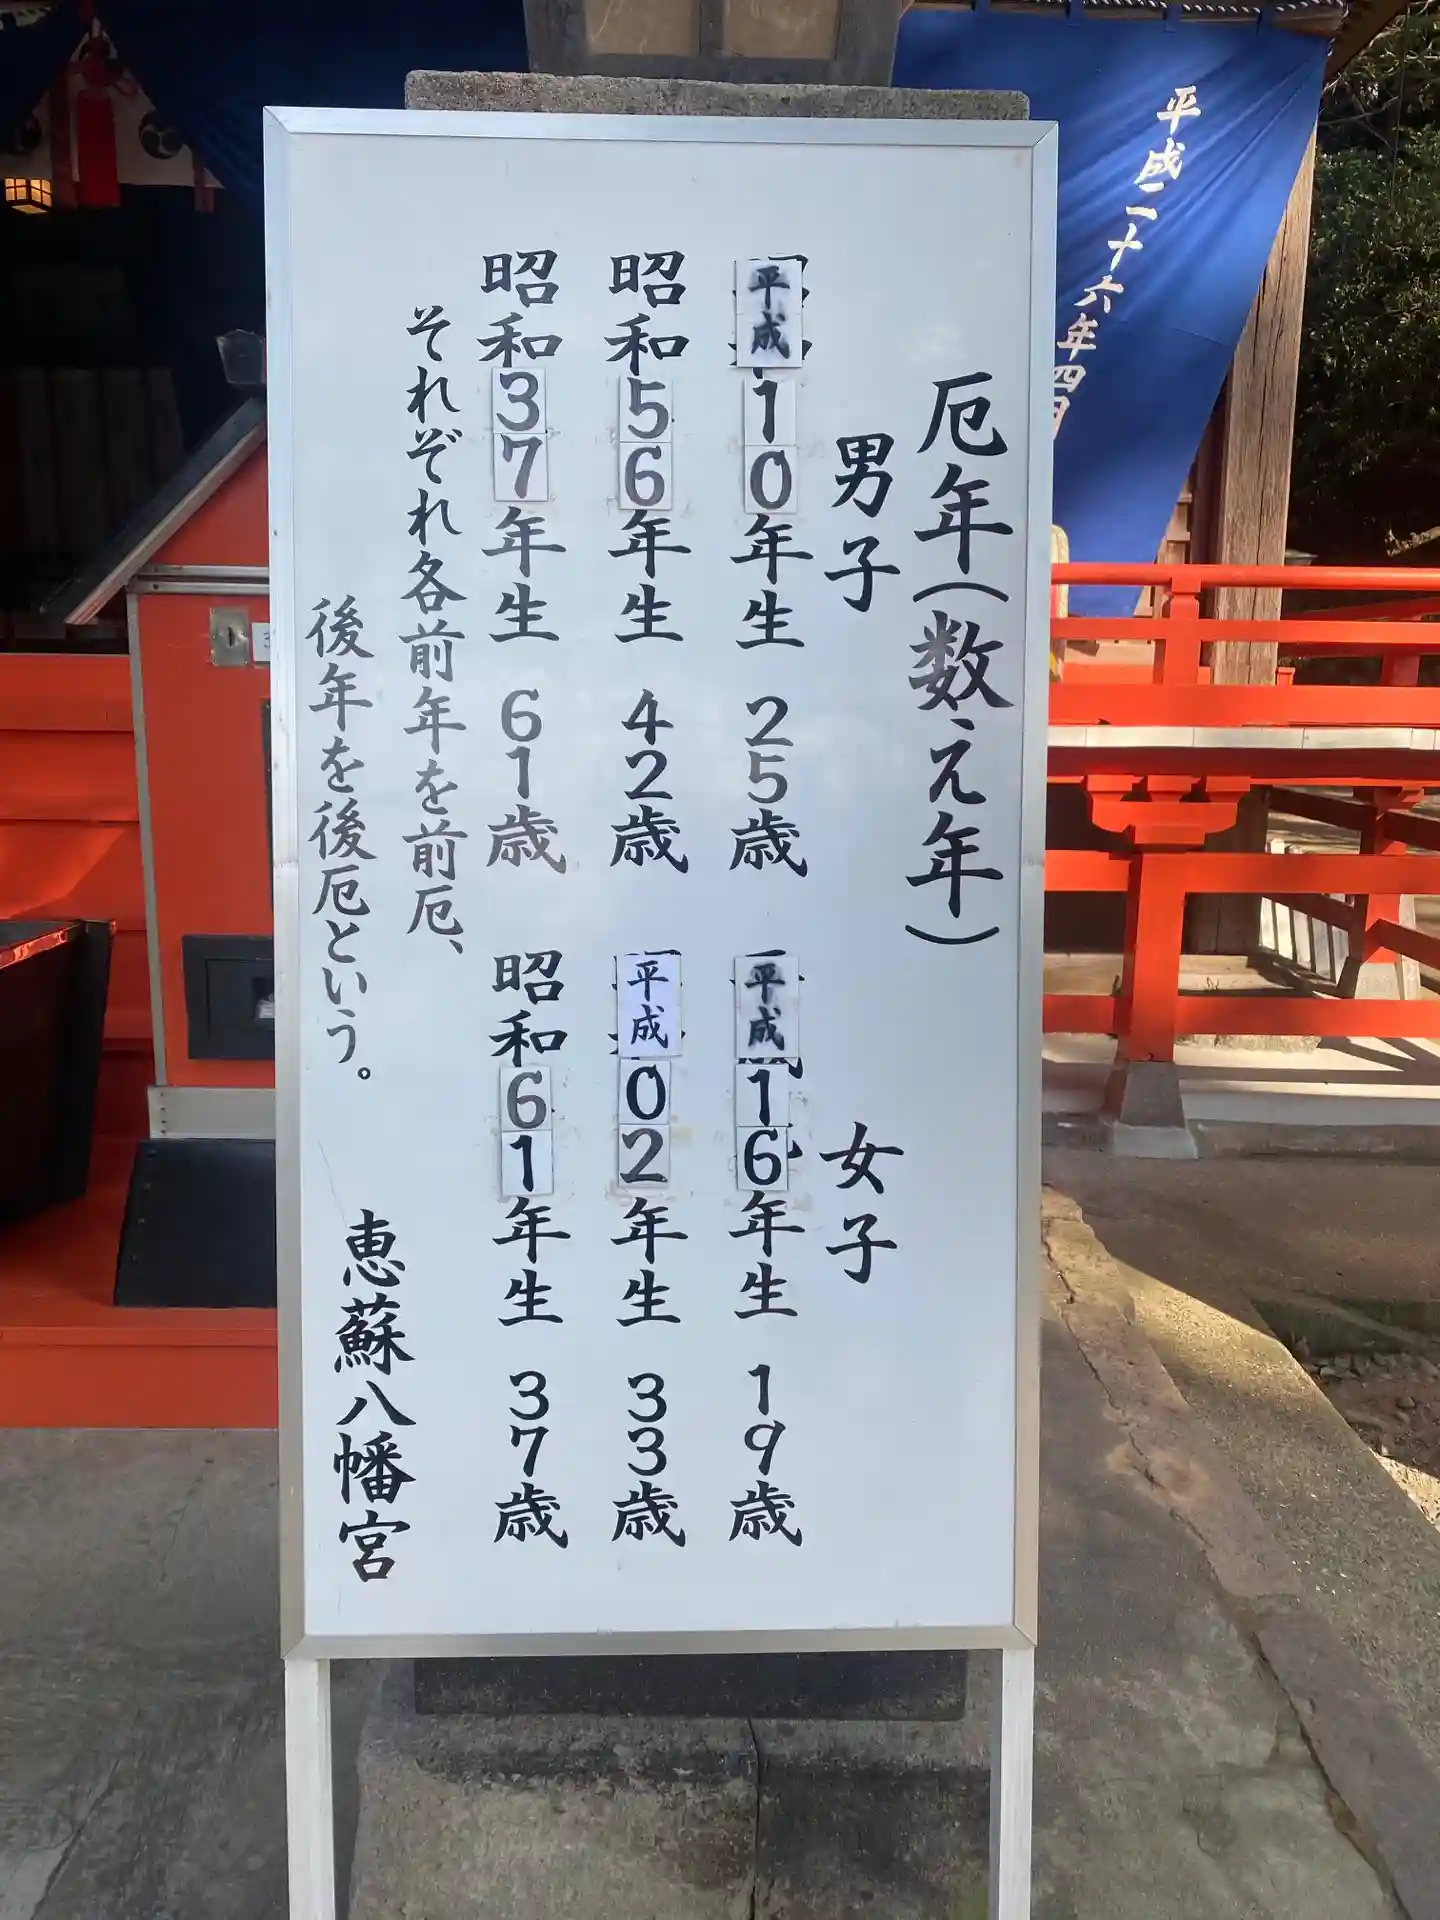 厄年(数え年)
男子
平成10年生 25歳
昭和56年生 42歳
昭和37年生 61歳
女子
平成16年生 19歳
平成02年生 33歳
昭和61年生 37歳
それぞれ各前年を前厄、
後年を後厄という。
恵蘇八幡宮
平成二十六年四月